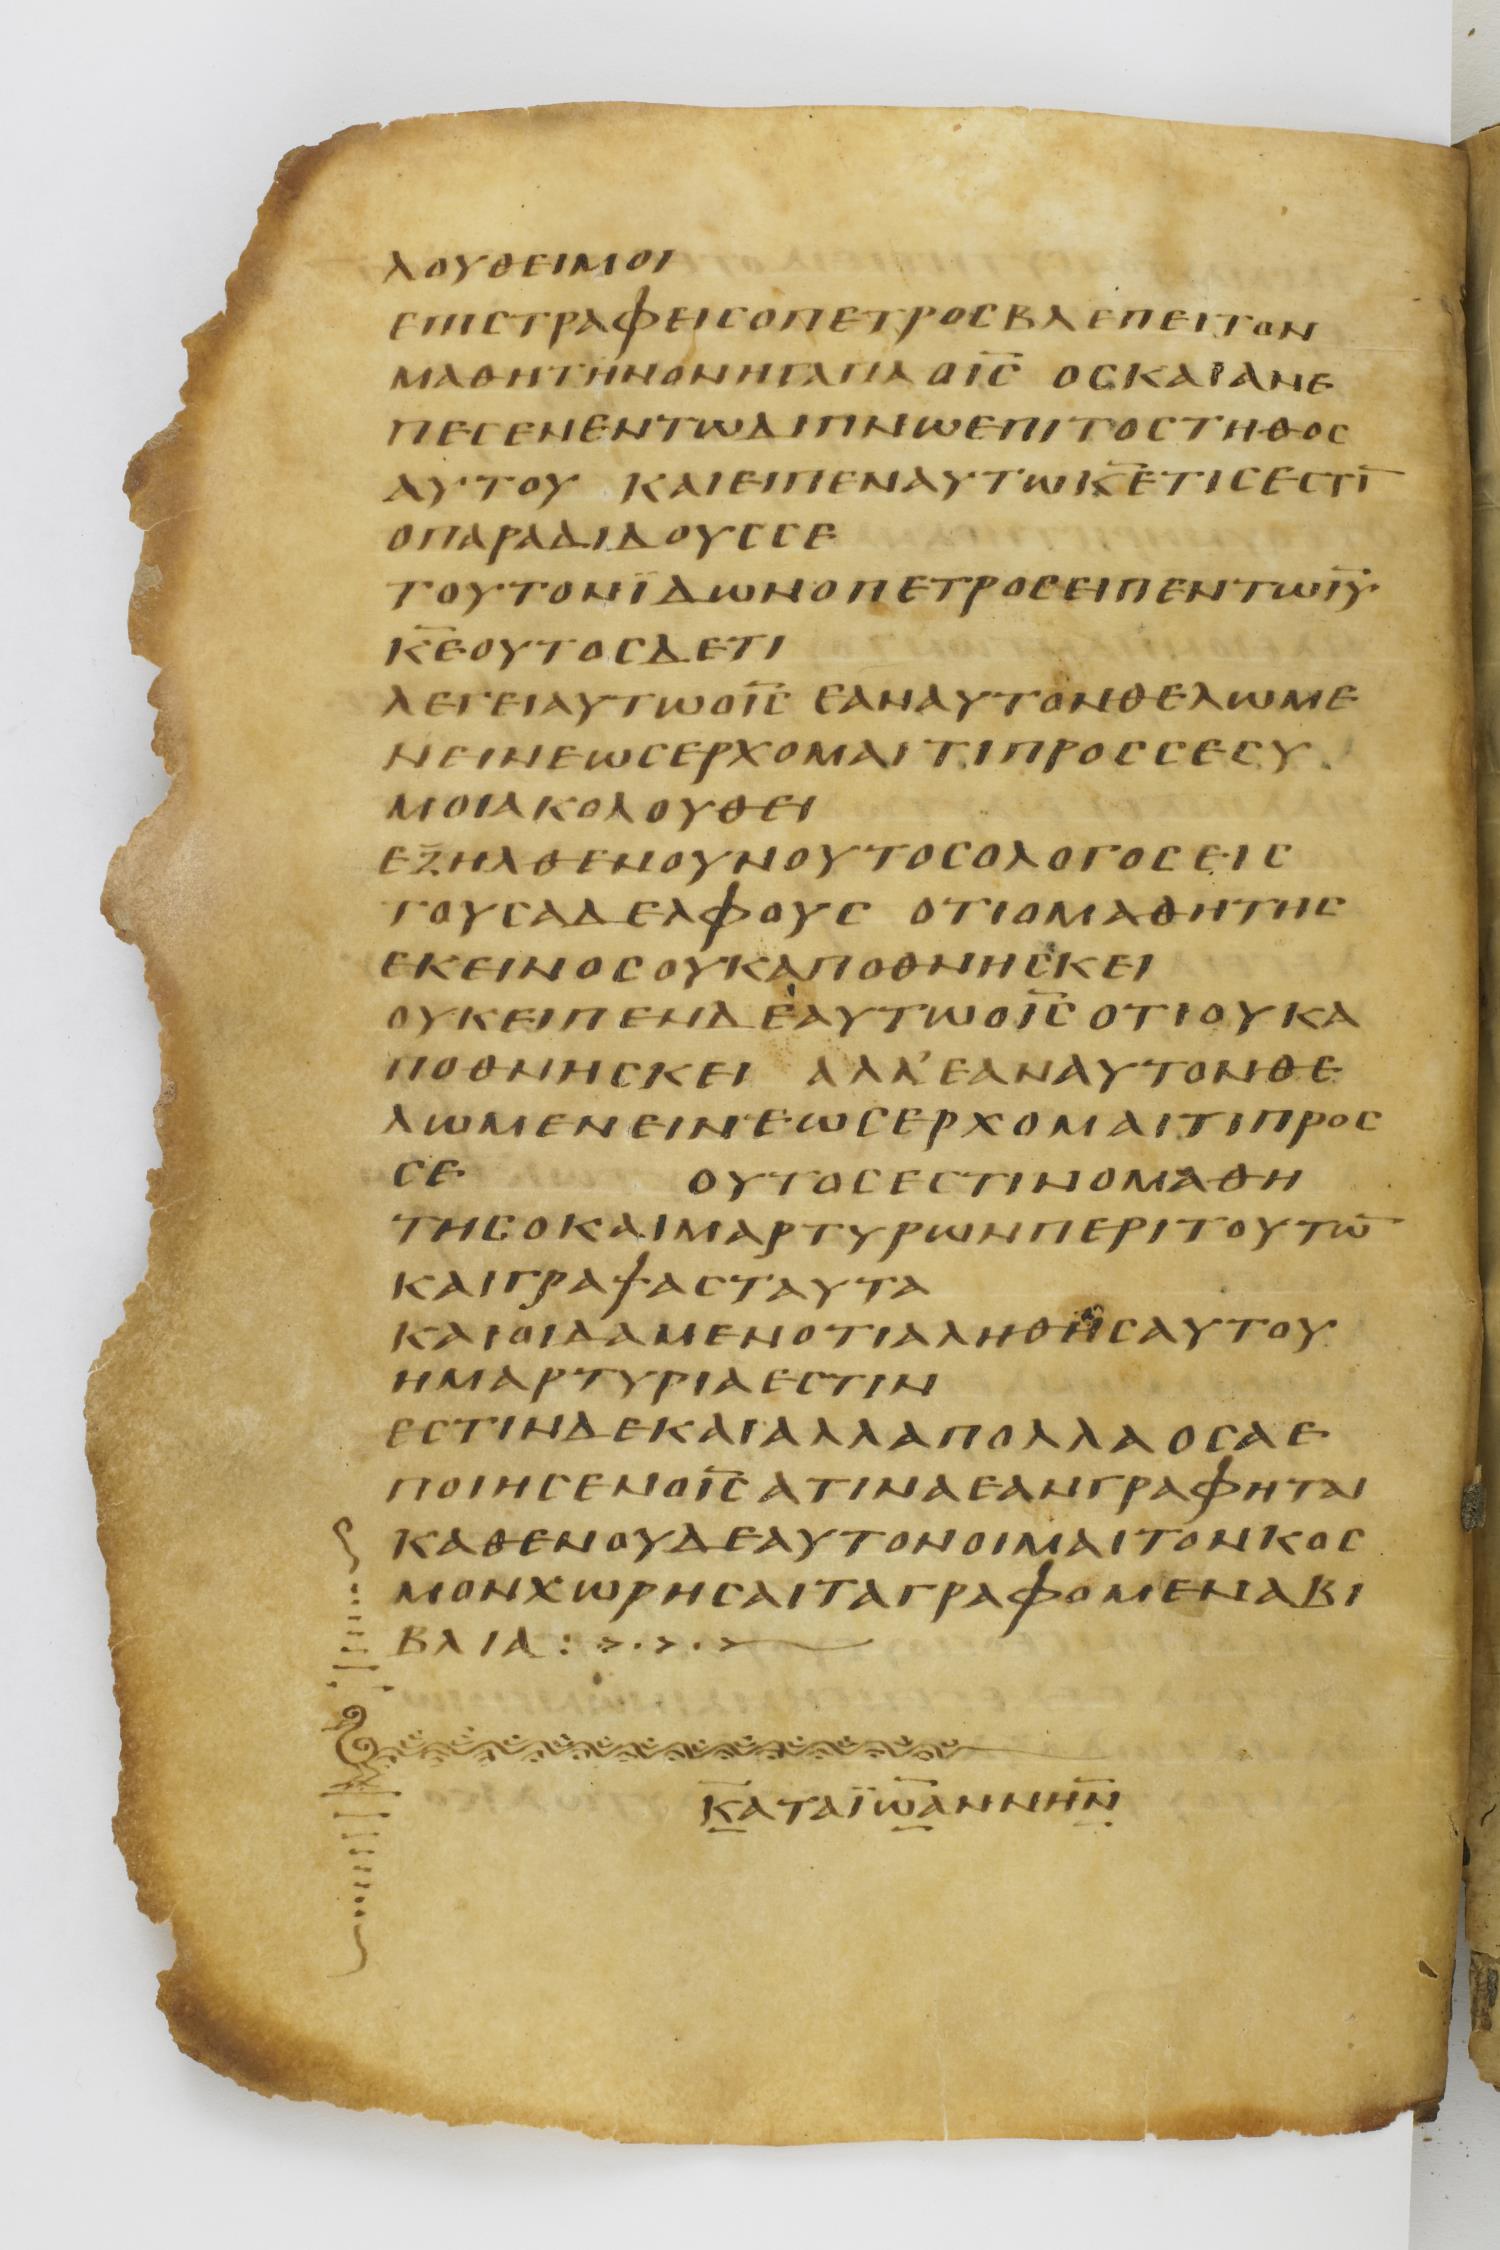 ΛΟΥΘΕΙΜΟΙ
ΕΠΙΣΤΡΑΦΕΙΣΟΠΕΤΡΟΣΒΛΕΠΕΙΤΟΝ
ΜΑΘΗΤΗΝΟΝΗΓΑΠΑΟΙ̅Σ̅ ΟΣΚΑΙΑΝΕ
ΠΕΣΕΝΕΝΤΩΔΙΠΝΩΕΠΙΤΟΣΤΗΘΟΣ
ΑΥΤΟΥ ΚΑΙΕΙΠΕΝΑΥΤΩΚ̅Ε̅ΤΙΣΕΣΤΙ̅
ΟΠΑΡΑΔΙΔΟΥΣΣΕ
ΤΟΥΤΟΝΪΔΩΝΟΠΕΤΡΟΣΕΙΠΕΝΤΩΙ̅Υ̅
Κ̅Ε̅ΟΥΤΟΣΔΕΤΙ
ΛΕΓΕΙΑΥΤΩΟΙ̅Σ̅ ΕΑΝΑΥΤΟΝΘΕΛΩΜΕ
ΝΕΙΝΕΩΣΕΡΧΟΜΑΙΤΙΠΡΟΣΣΕΣΥ
ΜΟΙΑΚΟΛΟΥΘΕΙ
ΕΞΗΛΘΕΝΟΥΝΟΥΤΟΣΟΛΟΓΟΣΕΙΣ
ΤΟΥΣΑΔΕΛΦΟΥΣ ΟΤΙΟΜΑΘΗΤΗΣ
ΕΚΕΙΝΟΣΟΥΚΑΠΟΘΝΗΣΚΕΙ
ΟΥΚΕΙΠΕΝΔΕΑΥΤΩΟΙ̅Σ̅ΟΤΙΟΥΚΑ
ΠΟΘΝΗΣΚΕΙ ΑΛΛ'ΕΑΝΑΥΤΟΝΘΕ
ΛΩΜΕΝΕΙΝΕΩΣΕΡΧΟΜΑΙΤΙΠΡΟΣ
ΣΕ ΟΥΤΟΣΕΣΤΙΝΟΜΑΘΗ
ΤΗΣΟΚΑΙΜΑΡΤΥΡΩΝΠΕΡΙΤΟΥΤΩ̅
ΚΑΙΓΡΑΨΑΣΤΑΥΤΑ
ΚΑΙΟΙΔΑΜΕΝΟΤΙΑΛΗΘΗΣΑΥΤΟΥ
ΗΜΑΡΤΥΡΙΑΕΣΤΙΝ
ΕΣΤΙΝΔΕΚΑΙΑΛΛΑΠΟΛΛΑΟΣΑΕ
ΠΟΙΗΣΕΝΟΙ̅Σ̅ΑΤΙΝΑΕΑΝΓΡΑΦΗΤΑΙ
ΚΑΘΕΝΟΥΔΕΑΥΤΟΝΟΙΜΑΙΤΟΝΚΟΣ
ΜΟΝΧΩΡΗΣΑΙΤΑΓΡΑΦΟΜΕΝΑΒΙ
ΒΛΙΑ:>·>·>
ΚΑΤΑΪΩΑΝΝΗΝ